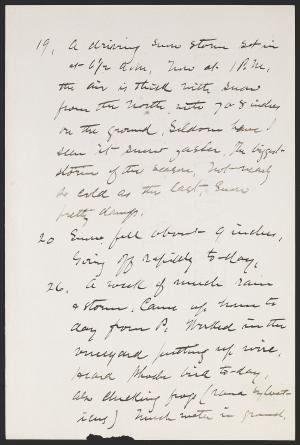 19. A driving snow storm set in
at 6 1/2 A.M, Now at 1 P.M,
the air is thick with snow
from the North, with 7 or 8 inches
on the ground, Seldom have I
seen it snow faster, The biggest
storm of the season, Not nearly
so cold as the last, Snow
pretty damp.
20 Snow fell about 9 inches,
Going off rapidly to-day,
26. A week of much rain
& storm. Came up home to
day from P. Worked in the
vineyard putting up wire,
heard Phoebe bird to-day,
also clucking frogs (rana sylvat-
icus) Much water in ground,